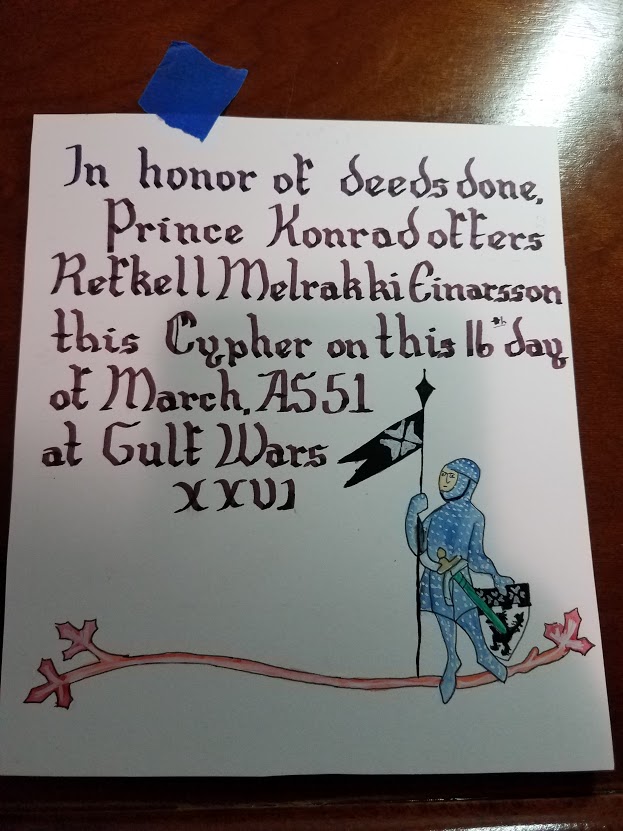 In honor of deeds done,
Prince Konrad offers
Refkell Melrakki Einarsson
this Cypher on this 16th day
of March, AS 51
at Gulf Wars
XXVI